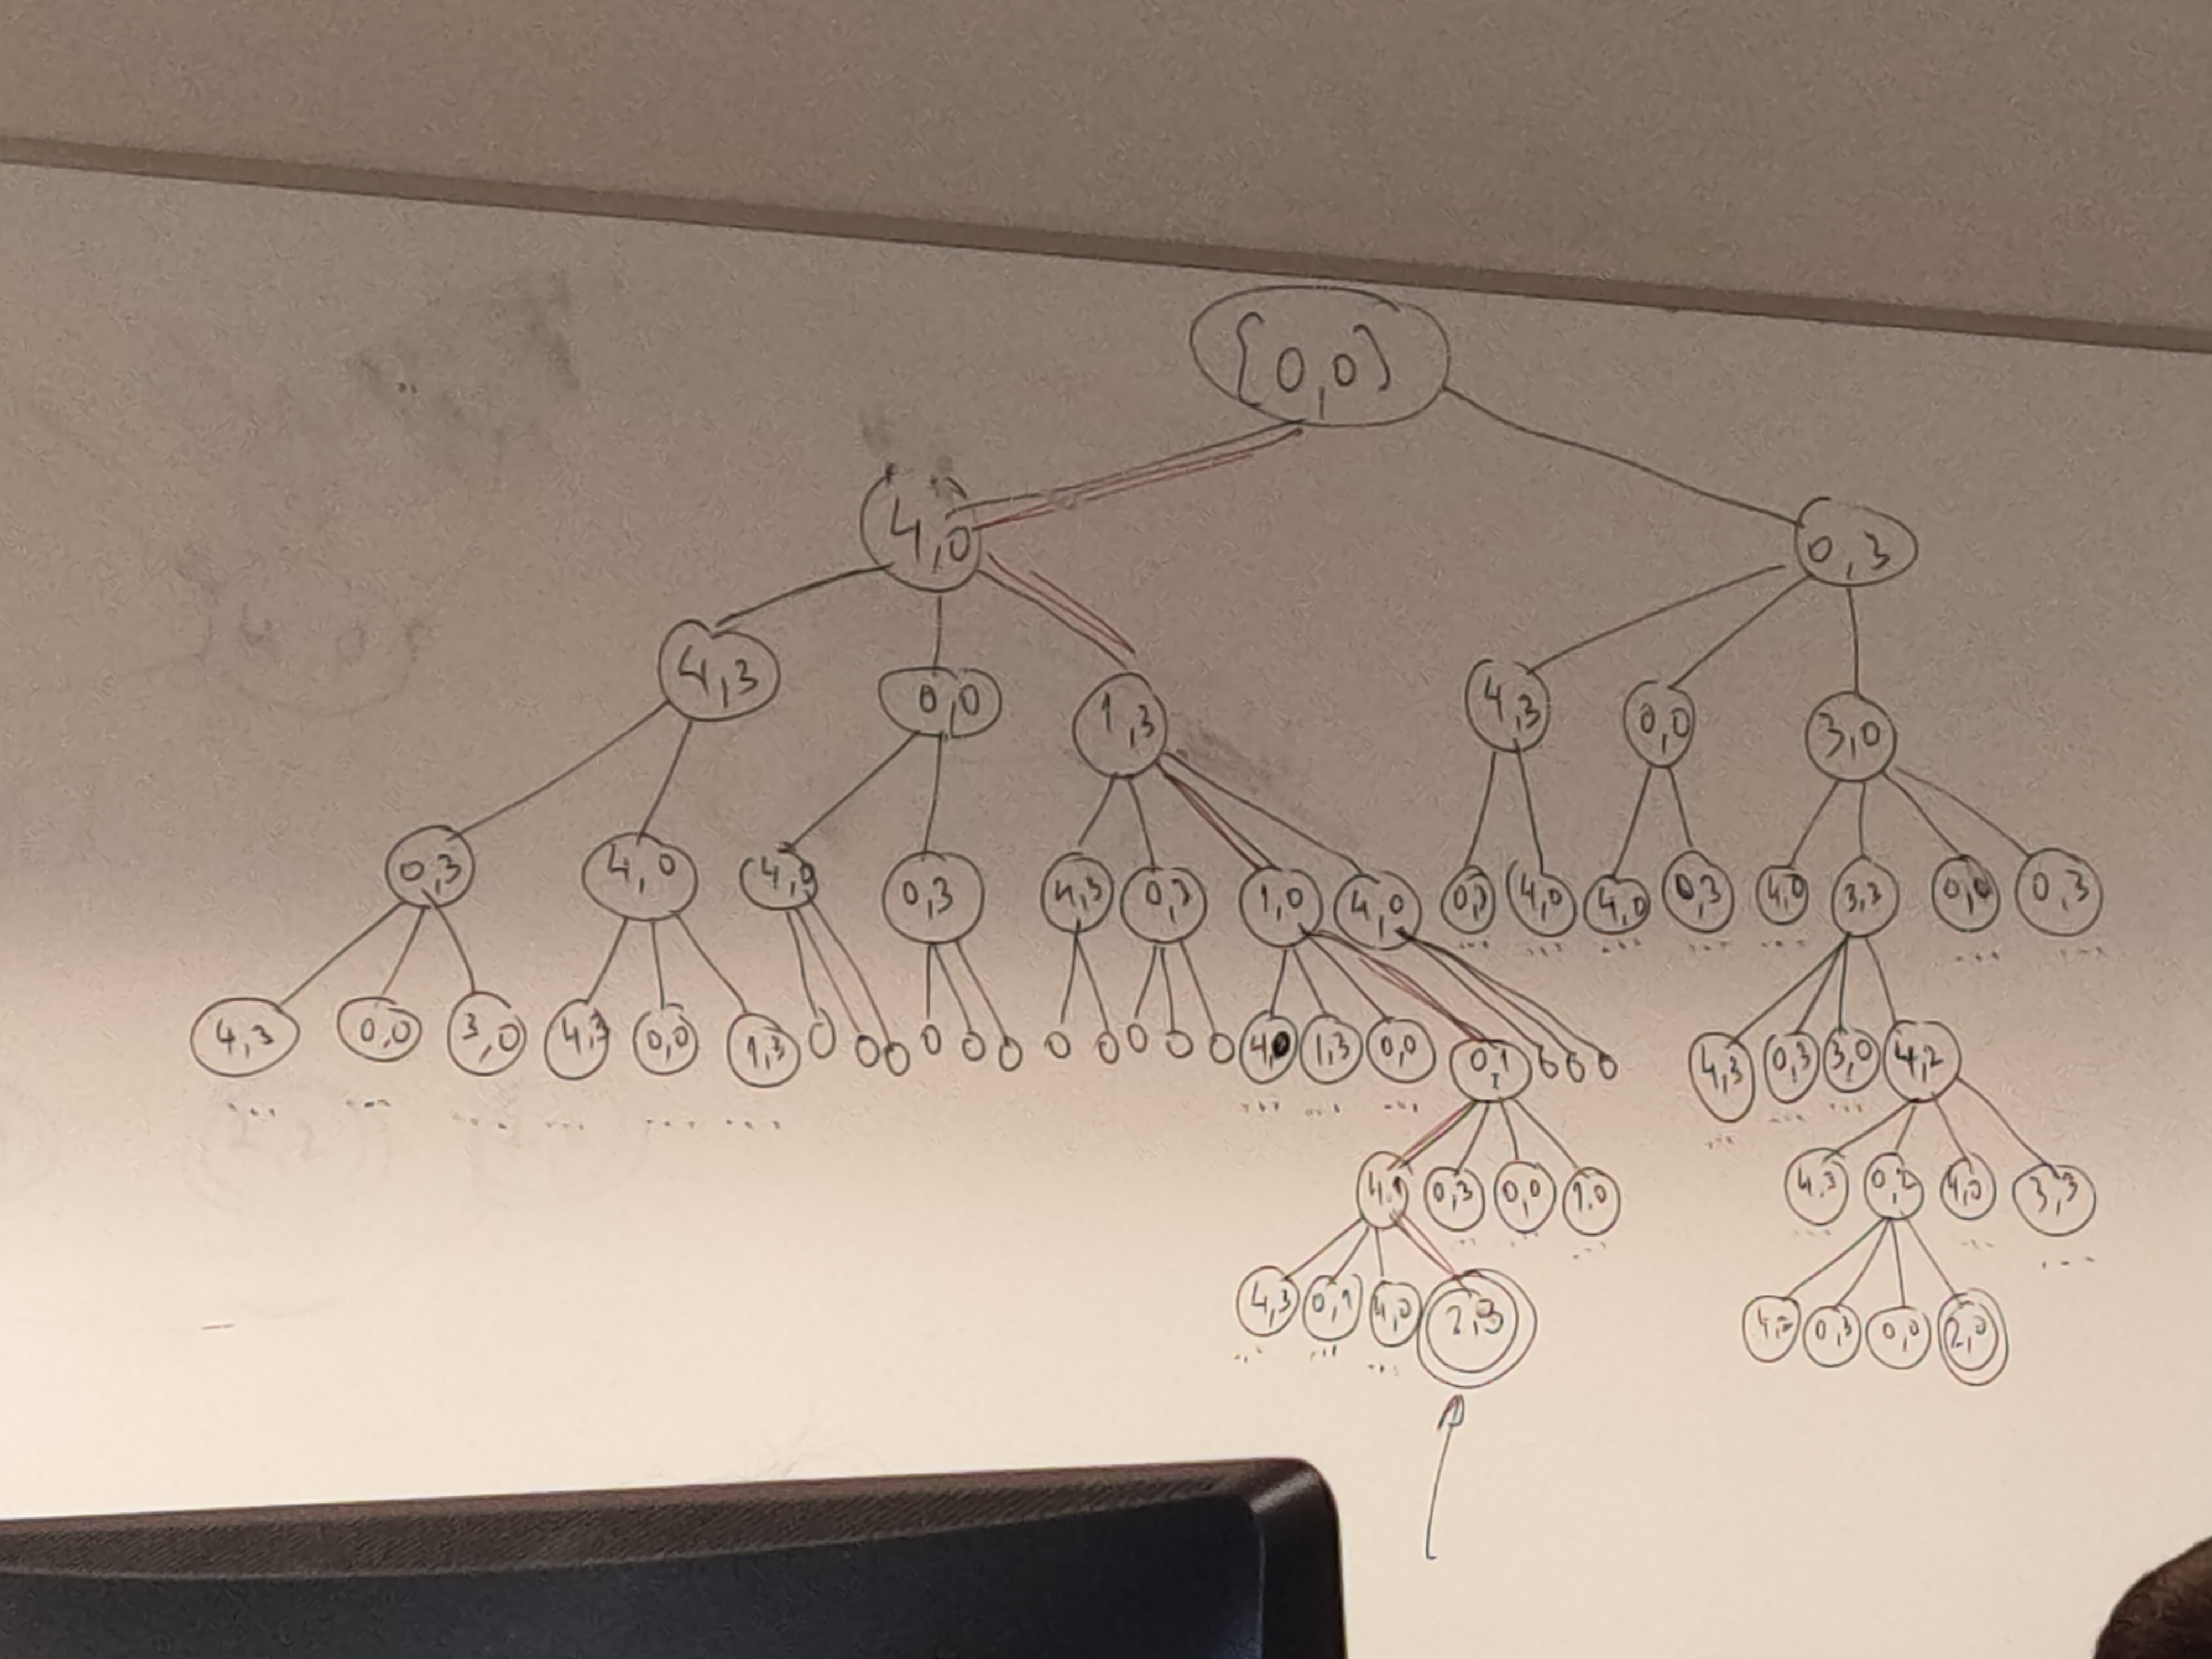 {0,0}
4,0 0,3
4,3 0,0 1,3 4,3 0,0 3,0
0,3 4,0 4,0 0,3 4,3 0,3 1,0 4,0 0,3 4,0 4,0 0,3 4,0 3,3 0,0 0,3
4,3 0,0 3,0 4,3 0,0 1,3 0 0 0 0 0 0 0 0 0 0 0 4,0 1,3 0,0 0,1 0 0 0 4,3 0,3 3,0 4,2
4,1 0,3 0,0 1,0 4,3 0,2 4,0 3,3
4,3 0,1 4,0 2,3 4,2 0,3 0,0 2,0